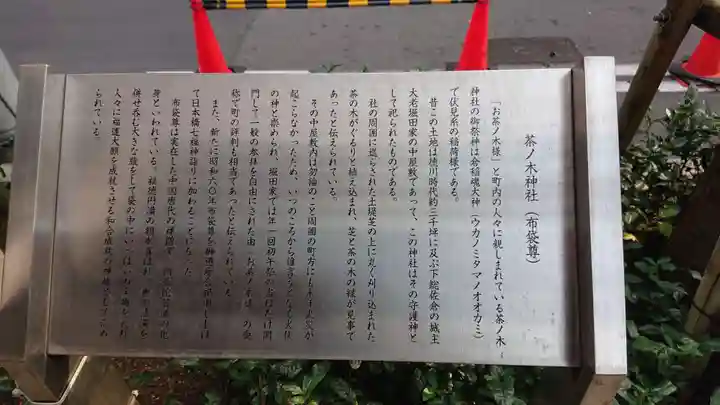 茶ノ木神社（布袋尊）
「お茶ノ木様」と町内の人々に親しまれている茶ノ木
神社の御祭神は倉稲魂大神（ウカノミタマノオオカミ）
で伏見系の稲荷様である。
昔この土地は徳川時代約三千坪に及ぶ下総佐倉の城主
大老堀田家の中屋敷であって、この神社はその守護神と
して祀られたものである。
社の周囲に巡らされた土堤芝の上に丸く刈り込まれた
茶の木がぐるりと植え込まれ、芝と茶の木の緑が見事で
あったと伝えられている。
その中屋敷内は勿論のこと周囲の町方にも永年火災が
起こらなかったため、いつのころから誰言うとなく火伏
の神と崇められ、堀田家では年一回初午祭の当日だけ開
門して一般の参拝を自由にされた由「お茶ノ木様」の愛
称で町の評判も相当であったと伝えられている。
また、新たに昭和六〇年布袋尊を御遷座
て日本橋七福神詣りに加わることになった。
布袋尊は実在した中国唐代の禅僧で
身といわれている。福徳円満の相
併せ呑む大きな腹をして袋の中に
人々に福運大願を成就させる和合成就の神様として
られている。